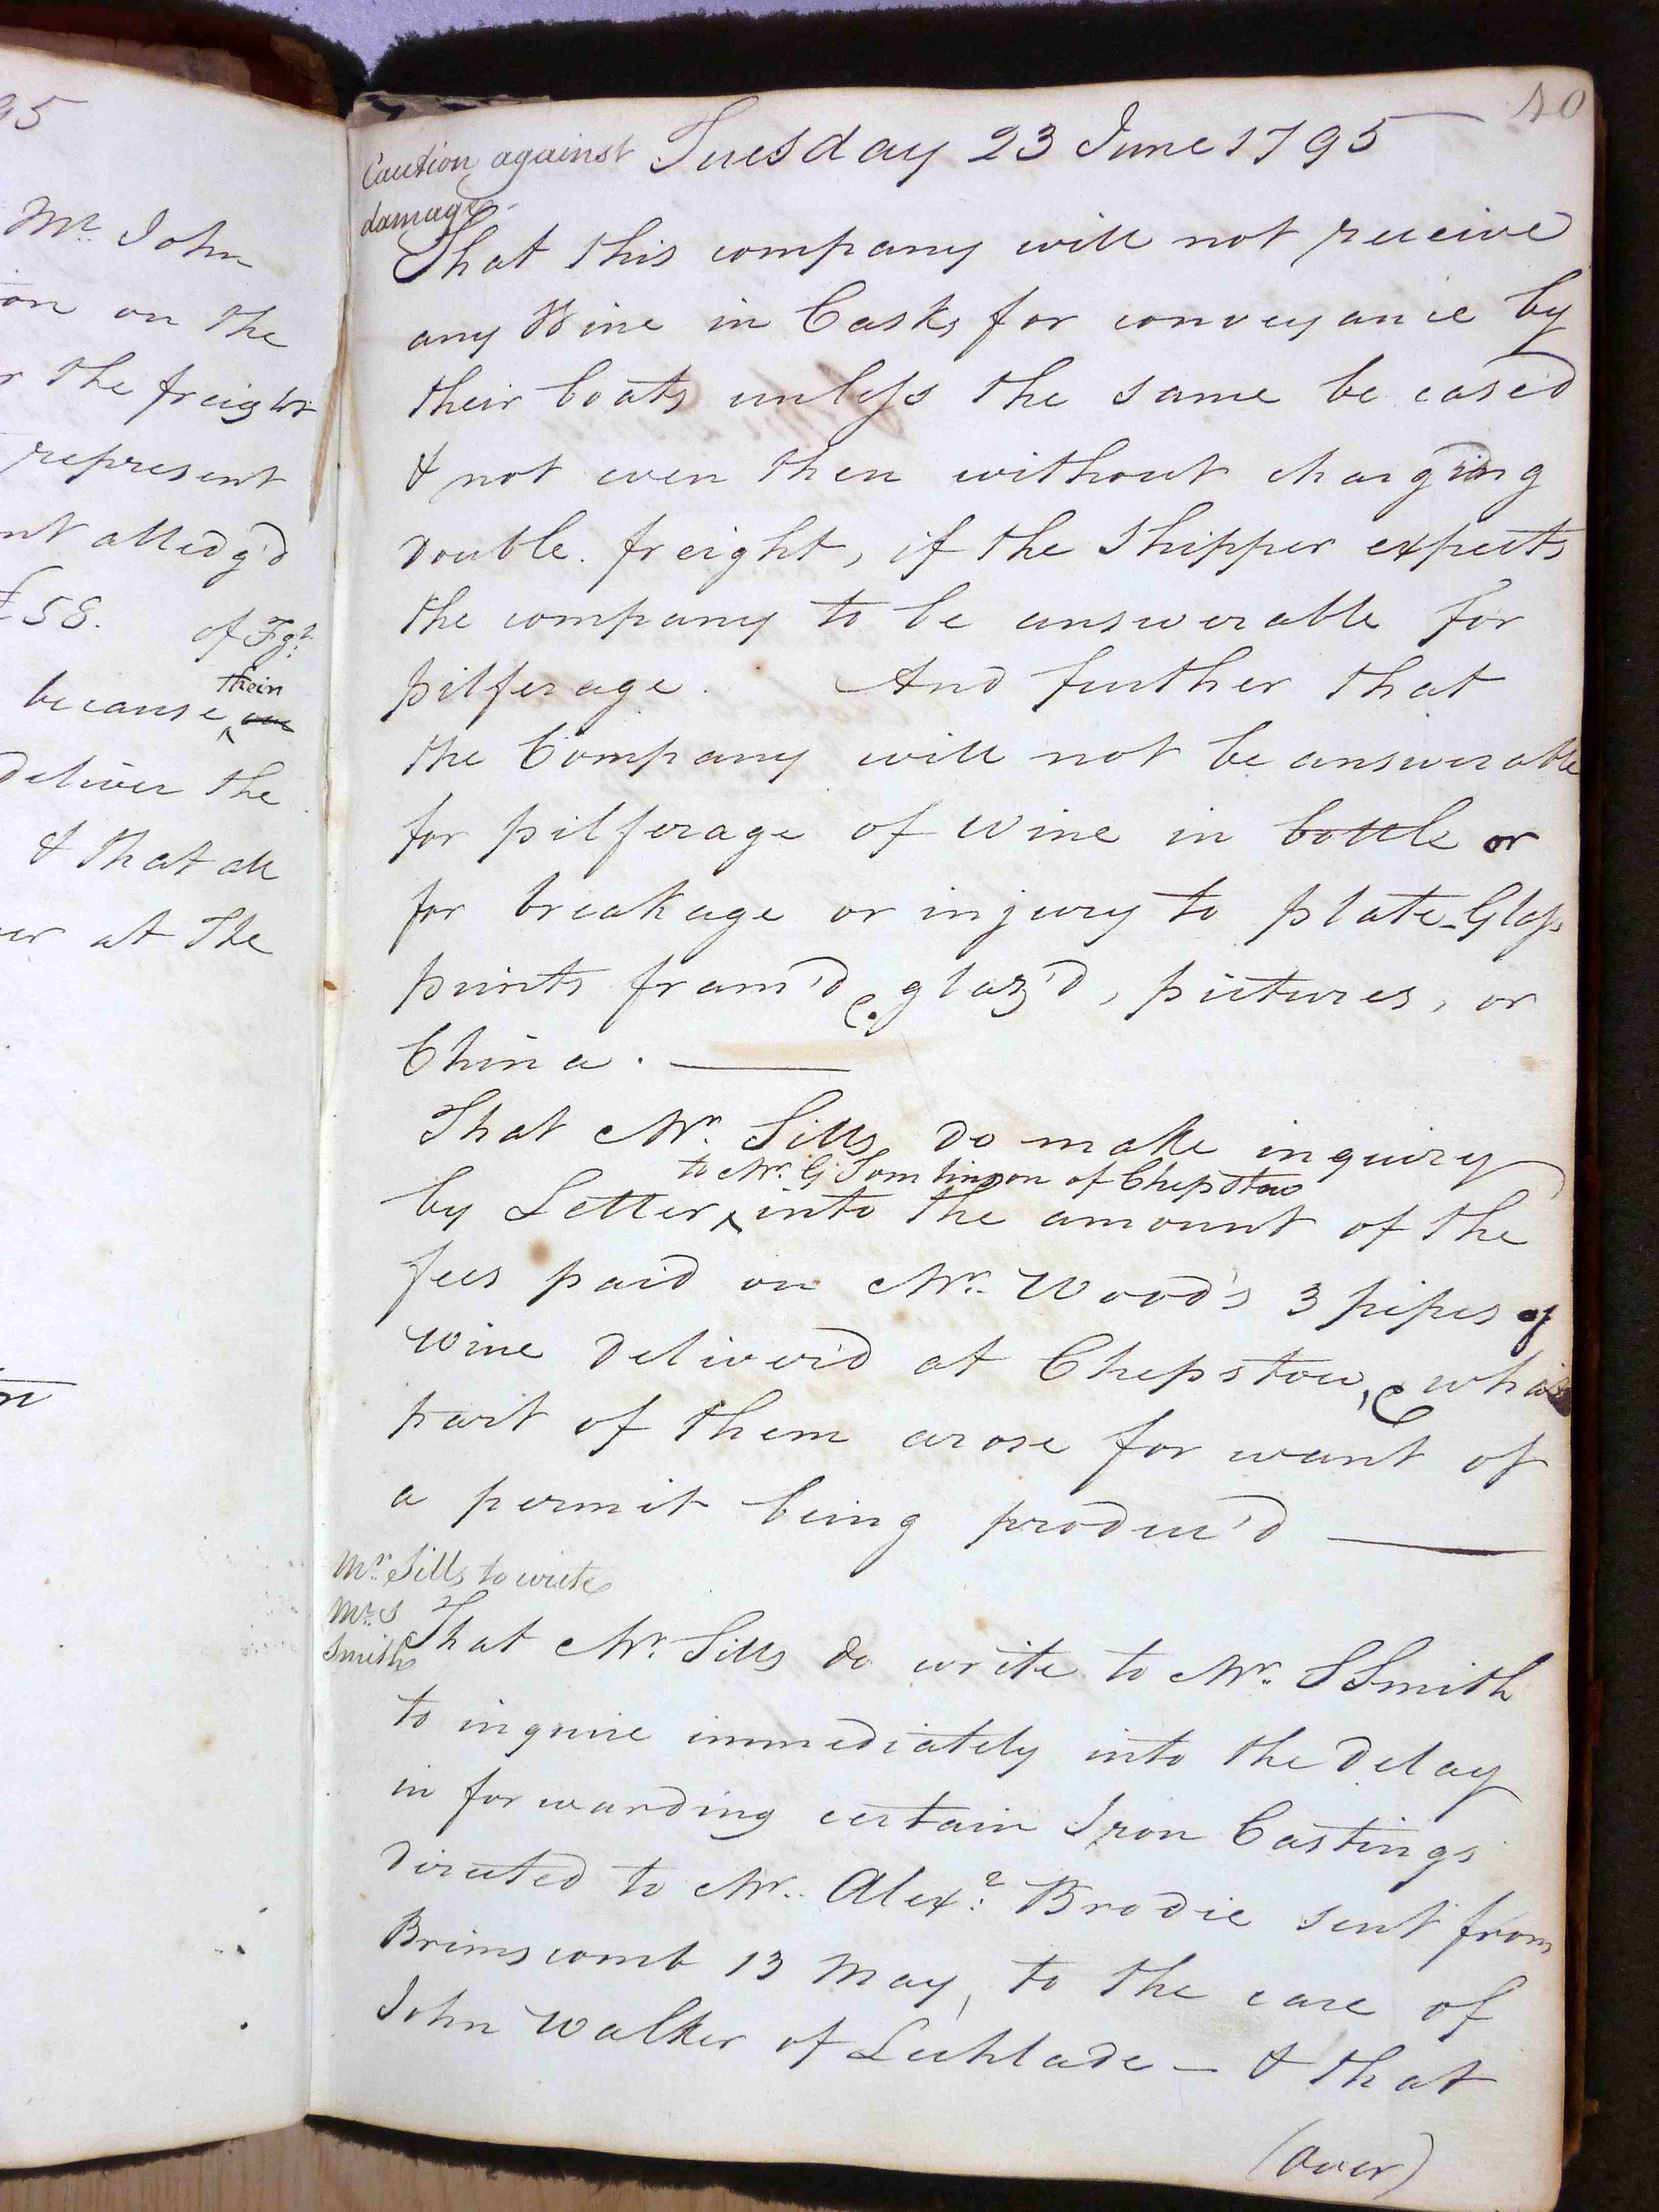 95
Mr. John
on on the
r the freight
represent
nt alledg'd
£58. of Fgt.
because ^their
deliver the
& that all
er at The
40
Tuesday 23 June 1795
Caution against
damage.
That this company will not receive
any Wine in Casks for conveyance by
their boats unless the same be cased
& not even then without charging
double freight, if the Shipper expects
the company to be answerable for
pilferage. And further that
the Company will not be answerable
for pilferage of Wine in bottle or
for breakage or injury to plate-Glass
prints fram'd & glaz'd, pictures, or
China. —
That Mr. Sills do make inquiry
to Mr. G Tomlinson of Chepstow
by Letter ^ into the amount of the
fees paid on Mr. Wood's 3 pipes of
Wine deliver'd at Chepstow, & what
part of them arose for want of
a permit being produc'd —
Mr. Sills to write
Mr. S
Smith
That Mr. Sills do write to Mr. S Smith
to inquire immediately into the delay
in forwarding certain Iron Castings
directed to Mr. Alexr. Brodie sent from
Brimscomb 13 May, to the care of
John Walker of Lechlade — & that
(Over)